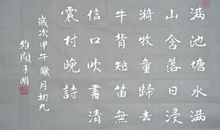 滿池塘水滿
山含落日浸
漪牧童歸去
牛背短笛無
信口吹書清
震村晚詩
歲次甲午臘月初九